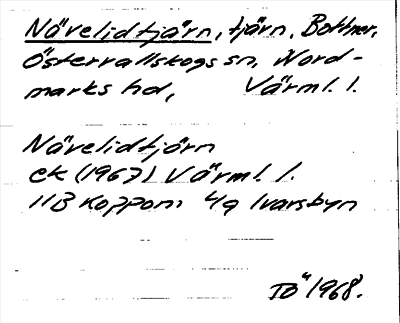 Nävelidtjärn, tjärn, Bottner,
Östervallskogs sn, Nord-
marks hd, Värml. l.
Nävelidtjärn
ek (1967) Värml. l.
11B Koppom 4g Ivarsbyn
TÖ 1968.